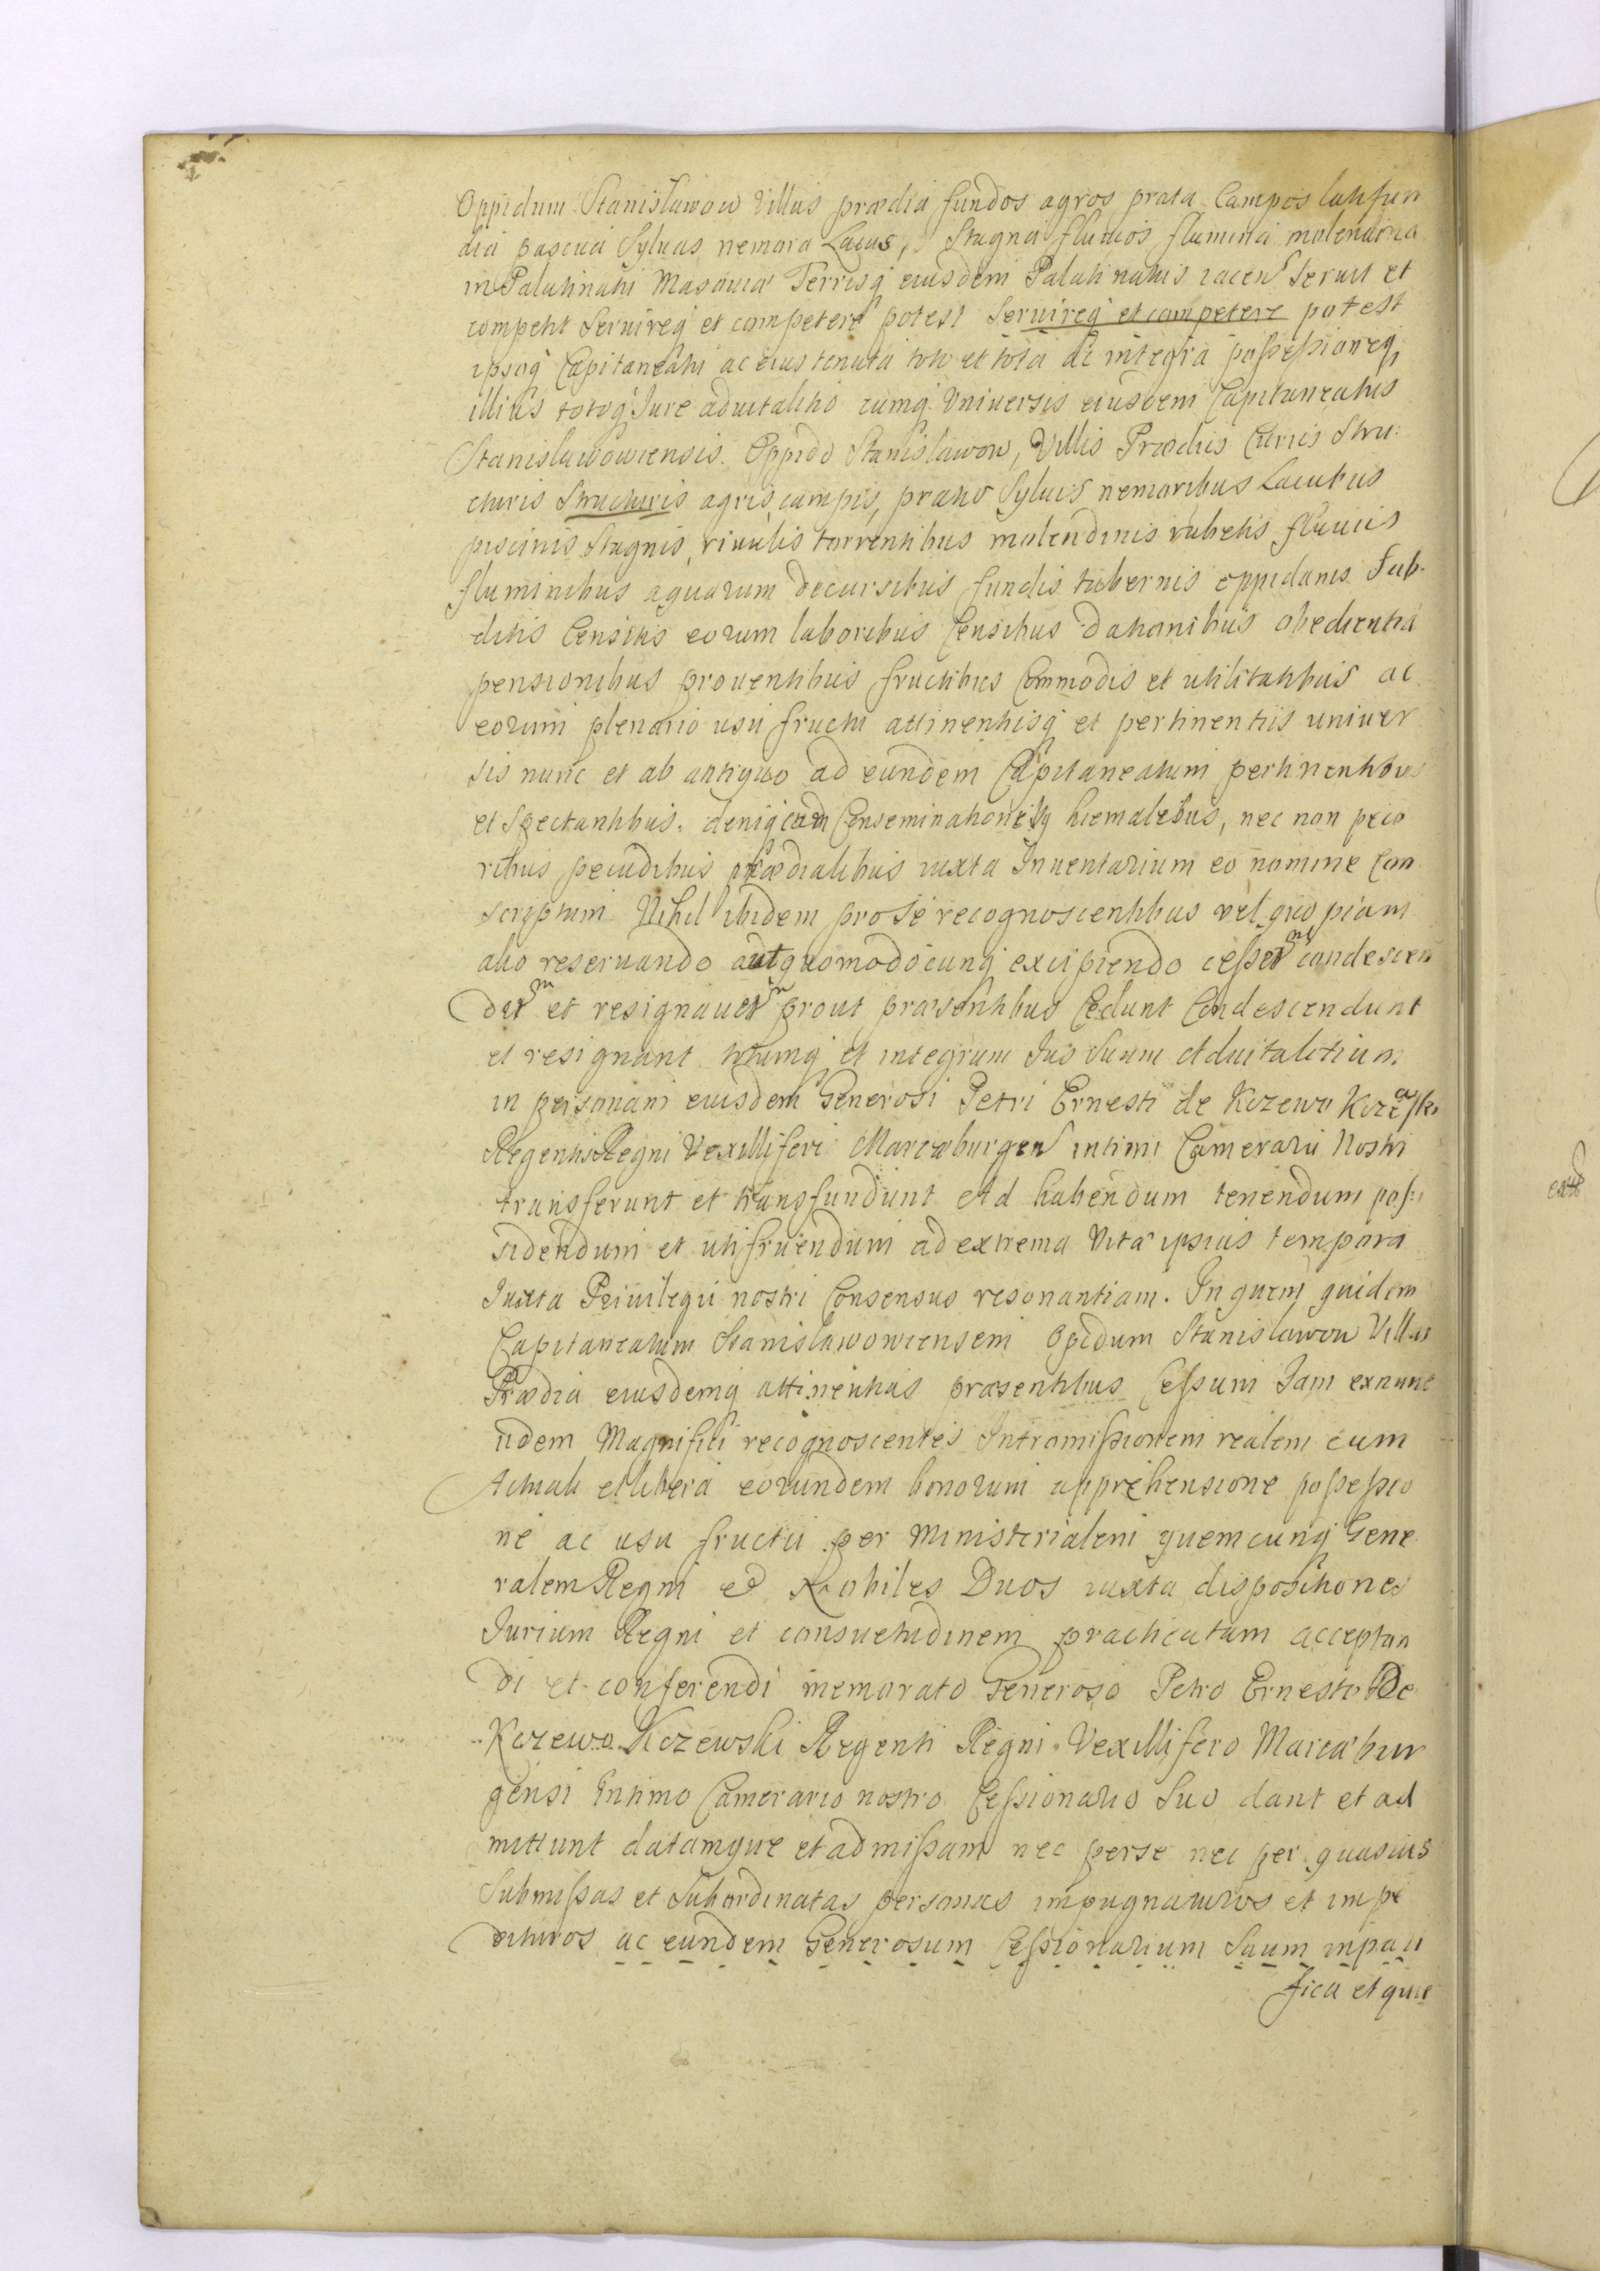 Oppidum Stanisławow Villas prædia fundos agros prata Campos latifun
dia pascua Syluas nemora Lacus, Stagna fluuios flumina molendina
in Palatinatu Masouiæ Terrisq eiusdem Palatinatus iacen Seruit et
competit Seruireq et competere potest Seruireq et competere potest
ipsoq Capitaneatu ac eius tenuta toto et tota ac integra possessioneq
illius totoq Jure aduitalitio cumq Vniuersis eiusdem Capitaneatus
Stanislawowiensis. Oppido Stanislawow, Villis Prædiis Curiis Stru
cturis Structuris agris campis, pratis Syluis nemoribus Lacubus
piscinis Stagnis, riuulis torrentibus molendinis rubetis fluuiis
fluminibus aquarum decursibus fundis tabernis oppidanis Sub
ditis Censitis eorum laboribus Censibus dationibus obedientia
pensionibus prouentibus fructibus Commodis et utilitatibus ac
eorum plenario usu fructu attinentiisq et pertinentiis uniuer
sis nunc et ab antiquo ad eundem Capitaneatum pertinentibus
et Spectantibus. deniq cum Conseminationibq hiemalibus, nec non peco
ribus pecudibus prædialibus iuxta Inuentarium eo nomine Con
scriptum Nihil ibidem pro se recognoscentibus vel quo piam
alio reseruando aut quomodocunq excipiendo cesser condescen
der et resignauer prout præsentibus Cedunt Condescendunt
et resignant totumq et integrum Jus Suum Aduitalitium
in personam eiusdem Generosi Petri Ernesti de Kczewo Kczewski
Regentis Regni Vexilliferi Mareæburgen intimi Camerarii Nostri
transferunt et transfundunt Ad habendum tenendum possi
sidendum et utifruendum ad extrema Vitæ ipsius tempora
Juxta Priuilegii nostri Consensus resonantiam. In quem quidem
Capitaneatum Stanislawowiensem Opidum Stanislawow Villas
Prædia eiusdemq attinentias præsentibus Cessum Jam exnunc
iidem Magnifici recognoscentes Intromissionem realem cum
Actuali et libera eorundem bonorum apprehensione possessio
ne ac usu fructu per Ministerialem quemcunq Gene
ralem Regni et Nobiles Duos iuxta dispositiones
Jurium Regni et consuetudinem practicatam acceptan
di et conferendi memorato Generoso Petro Ernesto De
Kczewo Kczewski Regenti Regni Vexillifero Mareæbur
gensi Intimo Camerario nostro Cessionario Suo dant et ad
mittunt datamque et admissam nec per se nec per quasuis
Submissas et Subordinatas personas impugnaturos et impe
dituros ac eundem Generosum Cessionarium Suum inpaci
fica et quie